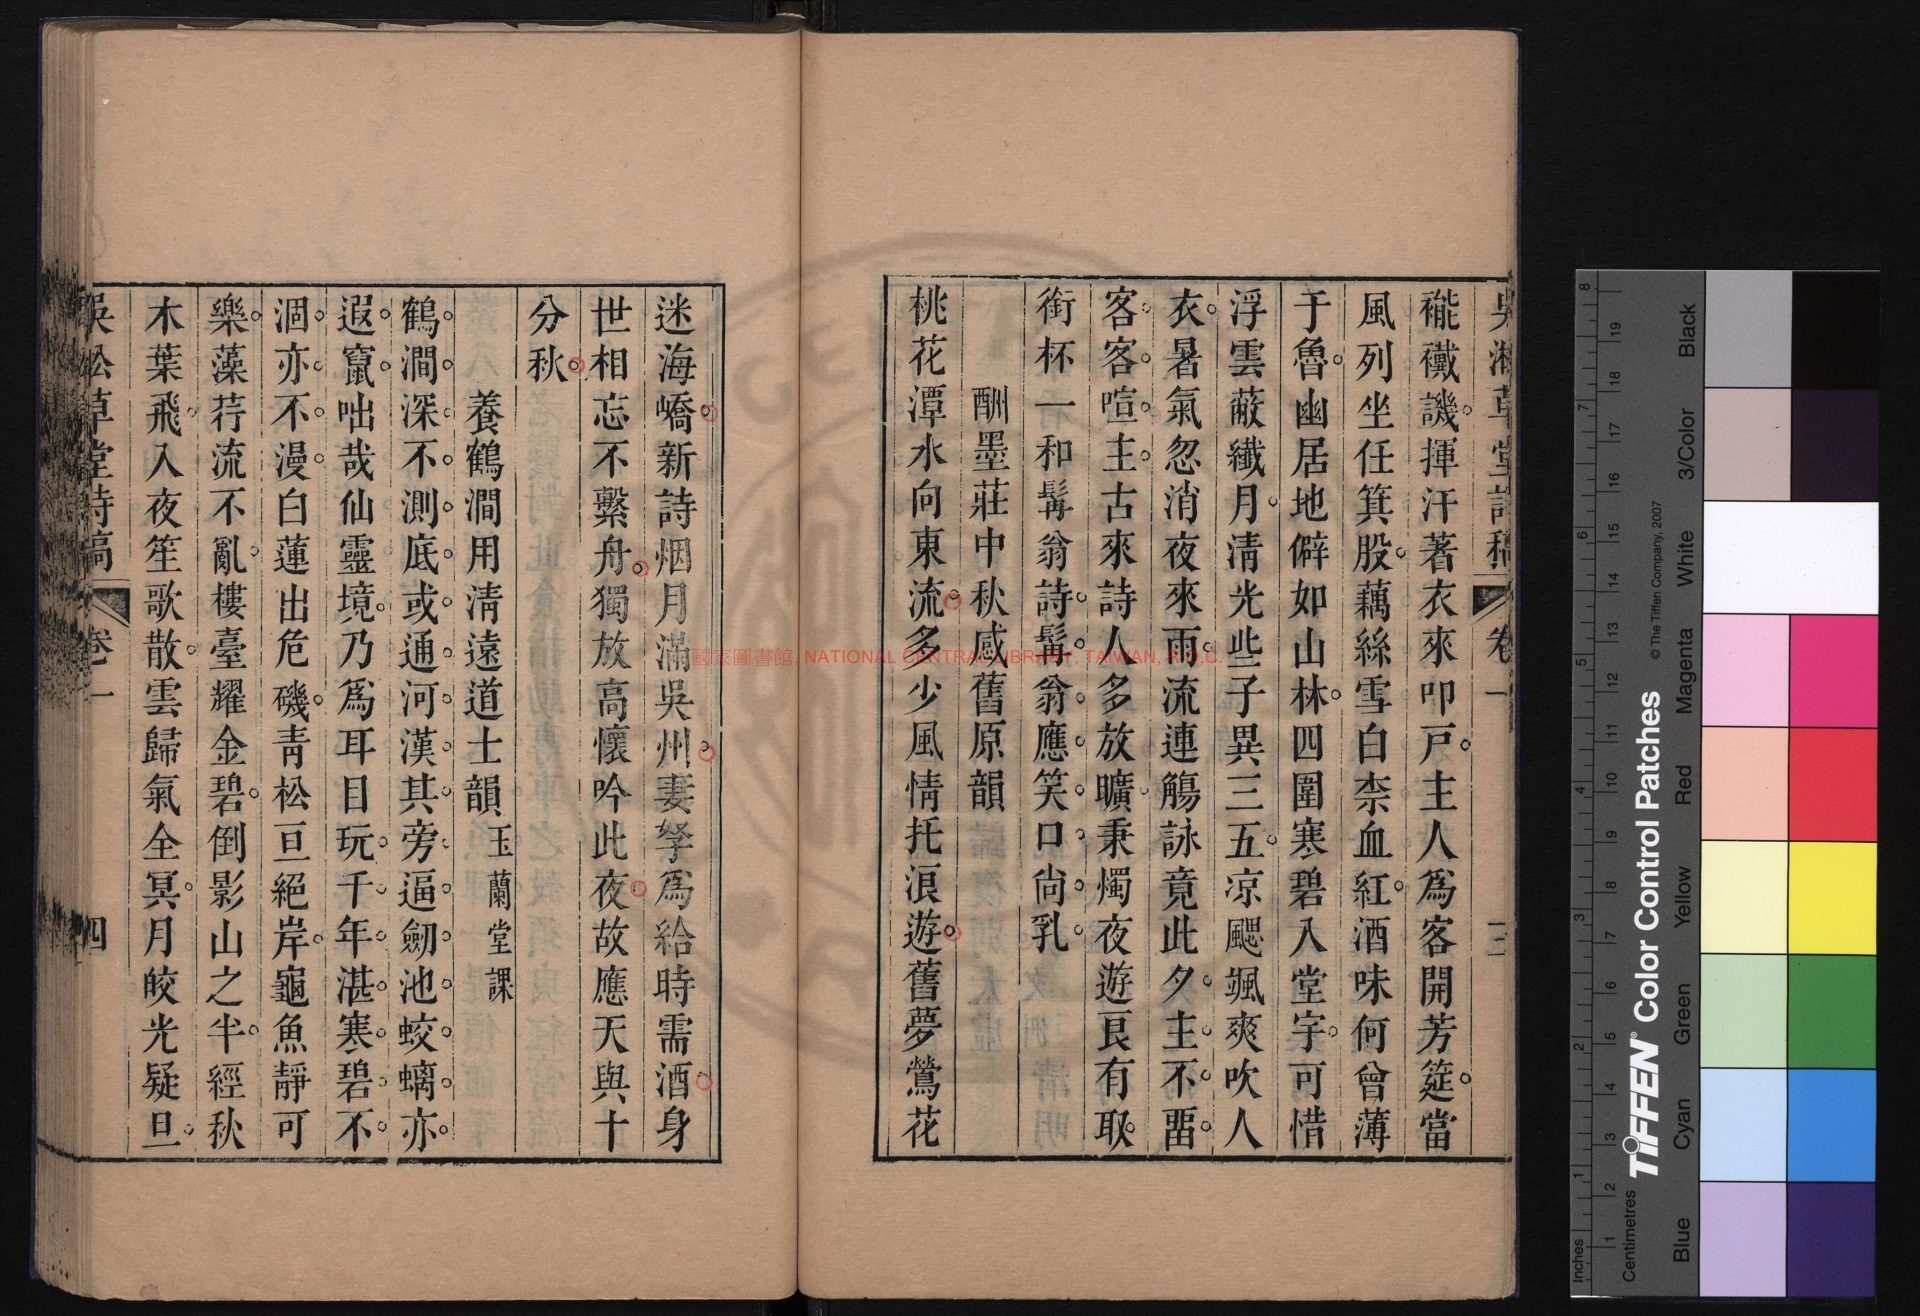 吳淞草堂詩稿 卷一 三
褦襶譏揮汗著衣來叩戸主人爲客開芳筵當
風列坐任箕股藕絲雪白柰血紅酒味何曾薄
于魯幽居地僻如山林四圍寒碧入堂宇可惜
浮雲蔽纖月清光些子異三五凉颸颯爽吹人
衣暑氣忽消夜來雨流連觴詠竟此夕主不畱
客客喧主古來詩人多放曠秉燭夜遊良有取
銜杯一和髯翁詩髯翁應笑口尙乳
酬墨莊中秋感舊原韻
桃花潭水向東流多少風情托浪遊舊夢鶯花
迷海嶠新詩烟月滿吳州妻孥爲給時需酒身
世相忘不繫舟獨放高懷吟此夜故應天與十
分秋
養鶴澗用清遠道士韻 玉蘭堂課
鶴澗深不測底或通河漢其旁逼劒池蛟螭亦
遐竄咄哉仙靈境乃爲耳目玩千年湛寒碧不
涸亦不漫白蓮出危磯青松亘絕岸龜魚靜可
樂藻荇流不亂樓臺耀金碧倒影山之半經秋
木葉飛入夜笙歌散雲歸氣全冥月皎光疑旦
吳淞草堂詩稿 卷一 四
國家圖書館, NATIONAL CENTRAL LIBRARY, TAIWAN, R.O.C.
Inches
Centimetres
TIFFEN® Color Control Patches
© The Tiffen Company, 2007
Blue
Cyan
Green
Yellow
Red
Magenta
White
3/Color
Black